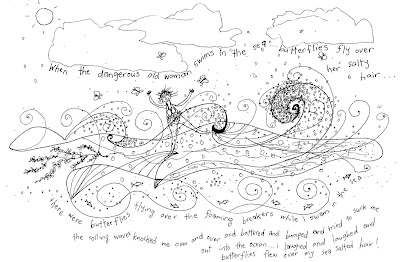 When the dangerous old woman swims in the sea... butterflies fly over
her salty
hair...
there were butterflies flying over the foaming breakers while I swam in the sea...
the rolling waves knocked me over and over and battered and bumped and tried to suck me
out into the ocean...i laughed and laughed and
butterflies flew over my sea salted hair!